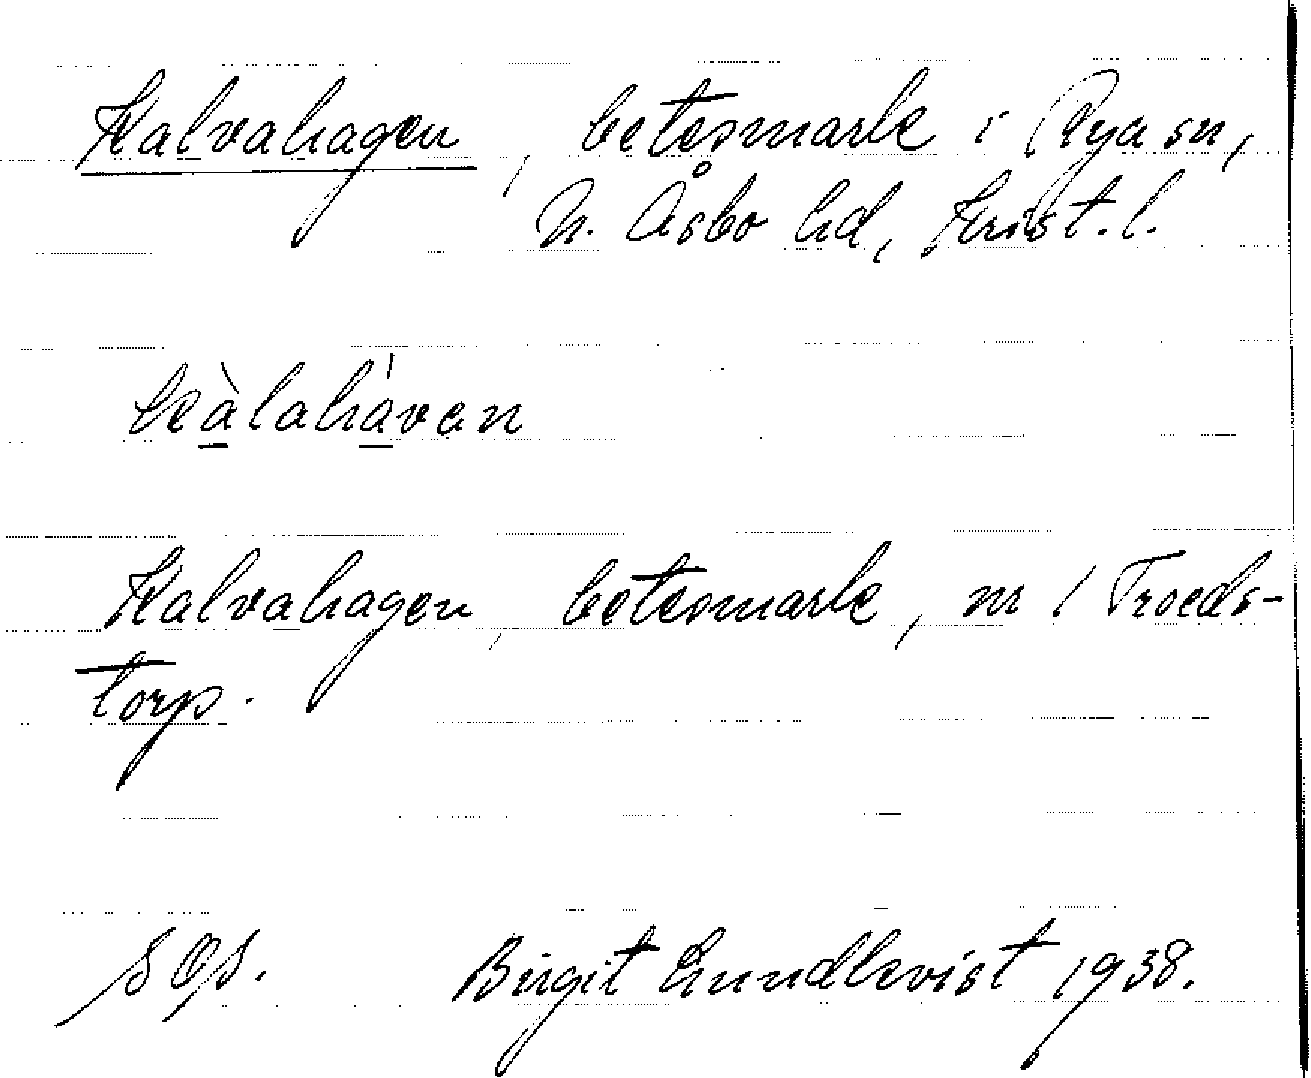 Kalvahagen, betesmark i Rya sn,
N. Åsbo hd, Krist. l.
kàlahávan
Kalvahagen, betesmark, nr 1 Troeds-
torp.
Birgit Lundkvist 1938.